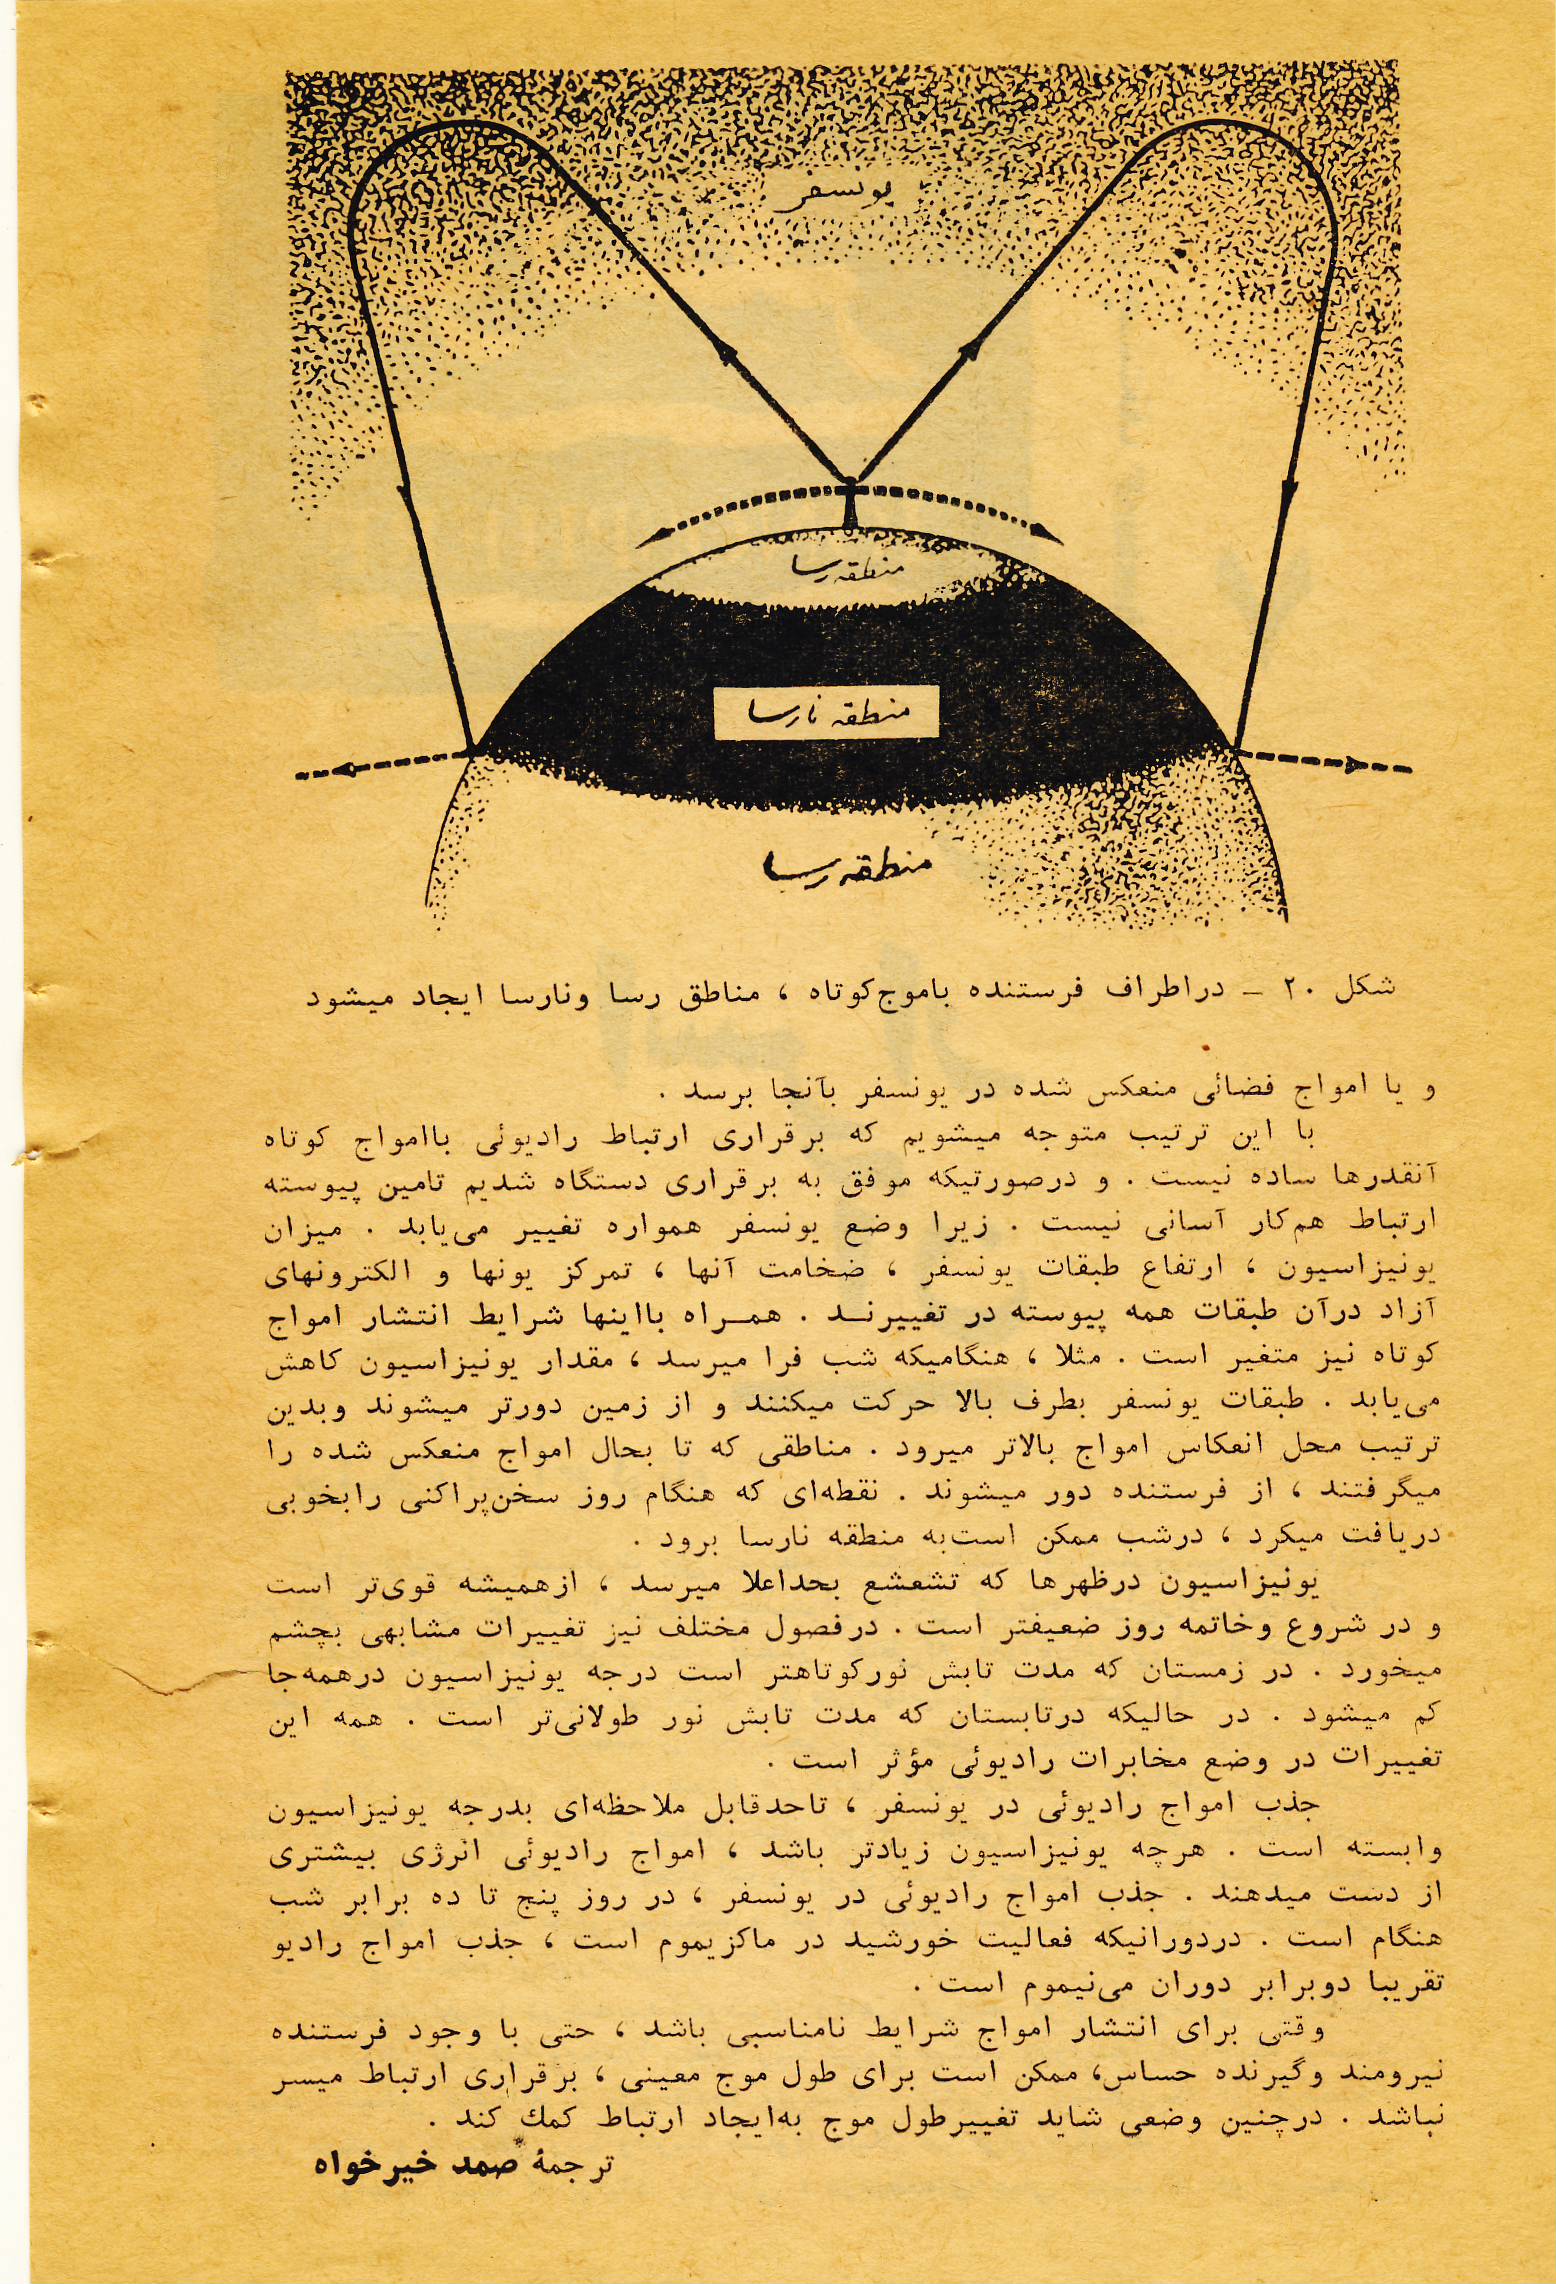 یونسفر
منطقه رسا
منطقه نارسا
منطقه رسا
شکل ۲۰ ـ دراطراف فرستنده باموج‌کوتاه ، مناطق رسا ونارسا ایجاد میشود
و یا امواج فضائی منعکس شده در یونسفر بآنجا برسد .
با این ترتیب متوجه میشویم که برقراری ارتباط رادیوئی باامواج کوتاه
آنقدرها ساده نیست . و درصورتیکه موفق به برقراری دستگاه شدیم تامین پیوسته
ارتباط هم‌کار آسانی نیست . زیرا وضع یونسفر همواره تغییر می‌یابد . میزان
یونیزاسیون ، ارتفاع طبقات یونسفر ، ضخامت آنها ، تمرکز یونها و الکترونهای
آزاد درآن طبقات همه پیوسته در تغییرنـد . همـراه بااینها شرایط انتشار امواج
کوتاه نیز متغیر است . مثلا ، هنگامیکه شب فرا میرسد ، مقدار یونیزاسیون کاهش
می‌یابد . طبقات یونسفر بطرف بالا حرکت میکنند و از زمین دورتر میشوند وبدین
ترتیب محل انعکاس امواج بالاتر میرود . مناطقی که تا بحال امواج منعکس شده را
میگرفتند ، از فرستنده دور میشوند . نقطه‌ای که هنگام روز سخن‌پراکنی رابخوبی
دریافت میکرد ، درشب ممکن است‌به منطقه نارسا برود .
یونیزاسیون درظهرها که تشعشع بحداعلا میرسد ، ازهمیشه قوی‌تر است
و در شروع وخاتمه روز ضعیفتر است . درفصول مختلف نیز تغییرات مشابهی بچشم
میخورد . در زمستان که مدت تابش نورکوتاهتر است درجه یونیزاسیون درهمه‌جا
کم میشود . در حالیکه درتابستان که مدت تابش نور طولانی‌تر است . همه این
تغییرات در وضع مخابرات رادیوئی مؤثر است .
جذب امواج رادیوئی در یونسفر ، تاحدقابل ملاحظه‌ای بدرجه یونیزاسیون
وابسته است . هرچه یونیزاسیون زیادتر باشد ، امواج رادیوئی انرژی بیشتری
از دست میدهند . جذب امواج رادیوئی در یونسفر ، در روز پنج تا ده برابر شب
هنگام است . دردورانیکه فعالیت خورشید در ماکزیموم است ، جذب امواج رادیو
تقریبا دوبرابر دوران می‌نیموم است .
وقتی برای انتشار امواج شرایط نامناسبی باشد ، حتی با وجود فرستنده
نیرومند وگیرنده حساس، ممکن است برای طول موج معینی ، برقراری ارتباط میسر
نباشد . درچنین وضعی شاید تغییرطول موج به‌ایجاد ارتباط کمك کند .
ترجمهٔ صمد خیرخواه